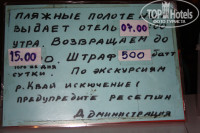 TopHotels
ПЛЯЖНЫЕ ПОЛОТЕ
ВЫДАЕТ ОТЕЛЬ 07.00
УТРА. ВОЗВРАЩАЕМ ДО
15.00 О. ШТРАФ 500 БАТТ
СУТКИ. ПО ЭКСКУРСИЯМ
Р. КВАЙ ИСКЛЮЧЕНИЕ!
ПРЕДУПРЕДИТЕ РЕСЕПШН
АДМИНИСТРАЦИЯ